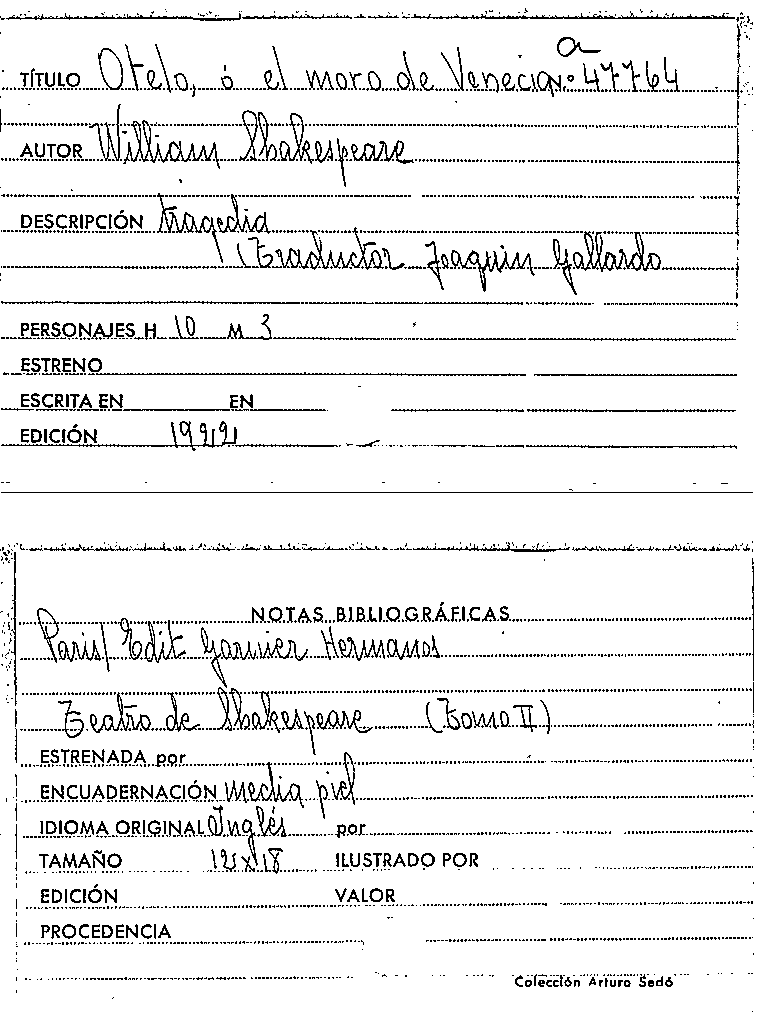 TÍTULO Otelo, ó el moro de Venecia Nº 47764
AUTOR William Shakespeare
DESCRIPCIÓN tragedia
(Traductor Joaquin Gallardo
PERSONAJES H 10 M 3
ESTRENO
ESCRITA EN EN
EDICIÓN 1921
NOTAS BIBLIOGRÁFICAS
Paris/ Edit Garnier Hermanos
Teatro de Shakespeare (Tomo II)
ESTRENADA por
ENCUADERNACIÓN media piel
IDIOMA ORIGINAL Inglés por
TAMAÑO 12 x 18 ILUSTRADO POR
EDICIÓN VALOR
PROCEDENCIA
Colección Arturo Sedó